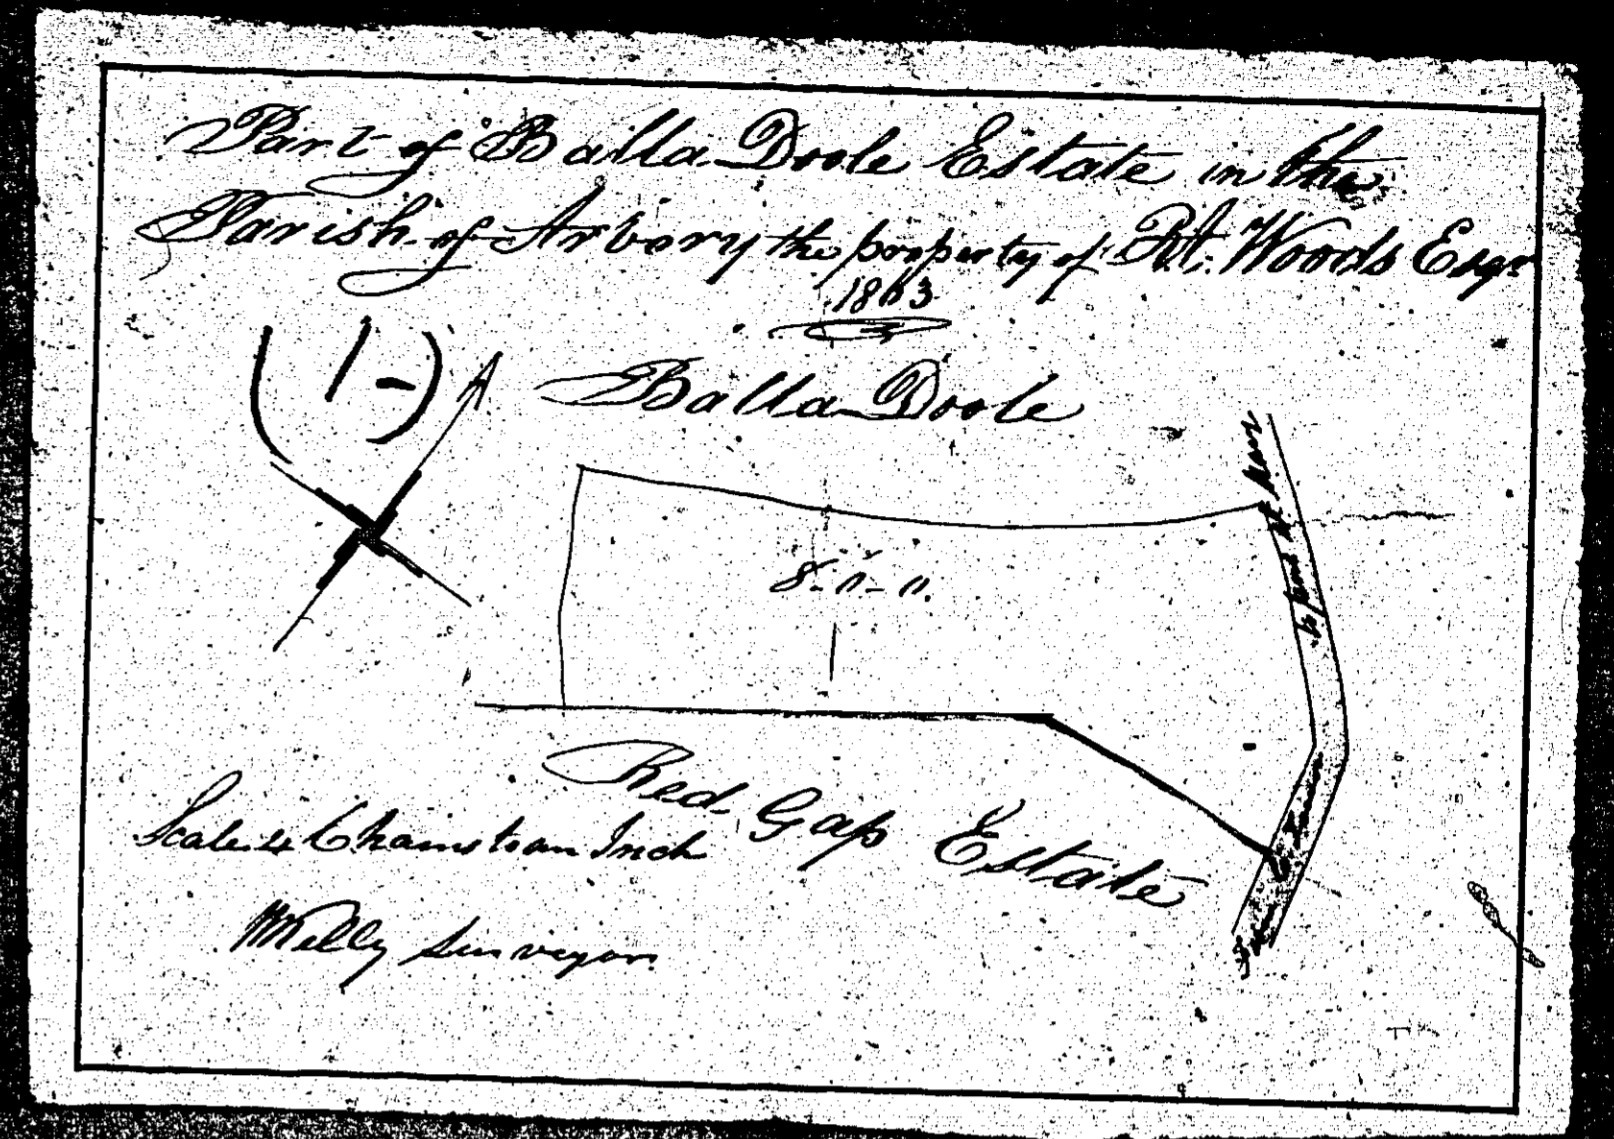 Part of Balla Doole Estate in the
Parish of Arbory the property of Rt. Woods Esqr
1863
(1-)
Balla Doole
8-0-0.
Red Gap Estate
Scale 4 Chains to an Inch
WKelly Surveyor